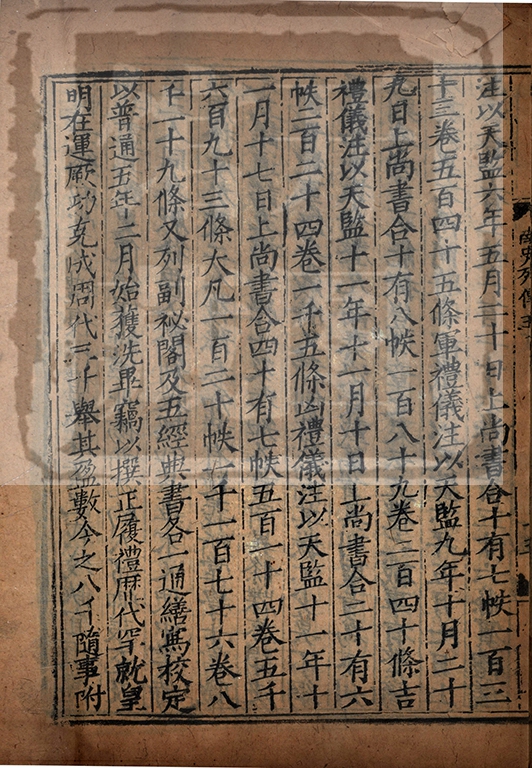 注以天監六年五月二十日上尚書合十有七帙一百三
十三卷五百四十五條軍禮儀注以天監九年十月二十
九日上尚書合十有八帙一百八十九卷二百四十條吉
禮儀注以天監十一年十一月十日上尚書合二十有六
帙二百二十四卷一千五條凶禮儀注以天監十一年十
一月十七日上尚書合四十有七帙五百一十四卷五千
六百九十三條大凡一百二十帙一千一百七十六卷八
千一十九條又列副祕閣及五經典書各一通繕寫校定
以普通五年二月始獲洗畢竊以撰正履禮歷代罕就皇
明在運厥功克成周代三千舉其盈數今之八千隨事附